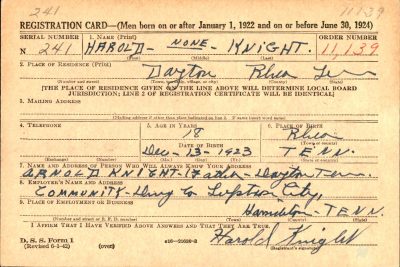 241
11139
REGISTRATION CARD—(Men born on or after January 1, 1922 and on or before June 30, 1924)
SERIAL NUMBER
1. NAME (Print)
ORDER NUMBER
N 241
HAROLD - NONE - KNIGHT.
11,139
(First) (Middle) (Last)
2. PLACE OF RESIDENCE (Print)
Dayton Rhea Tenn
(Number and street) (Town, township, village, or city) (County) (State)
[THE PLACE OF RESIDENCE GIVEN ON THE LINE ABOVE WILL DETERMINE LOCAL BOARD
JURISDICTION; LINE 2 OF REGISTRATION CERTIFICATE WILL BE IDENTICAL]
3. MAILING ADDRESS
[Mailing address if other than place indicated on line 2. If same insert word same]
4. TELEPHONE
5. AGE IN YEARS
6. PLACE OF BIRTH
18
Rhea
(Town or county)
DATE OF BIRTH
Dec - 13 - 1923
TENN.
(Exchange) (Number) (Mo.) (Day) (Yr.) (State or country)
7. NAME AND ADDRESS OF PERSON WHO WILL ALWAYS KNOW YOUR ADDRESS
ARNOLD KNIGHT - Father - Dayton Tenn.
8. EMPLOYER'S NAME AND ADDRESS
COMMUNITY - Drug Co Lupton City,
9. PLACE OF EMPLOYMENT OR BUSINESS
Hamilton - TENN.
(Number and street or R. F. D. number) (Town) (County) (State)
I AFFIRM THAT I HAVE VERIFIED ABOVE ANSWERS AND THAT THEY ARE TRUE.
D. S. S. Form 1
(Revised 6-9-42) (over)
Harold Knight
(Registrant's signature)